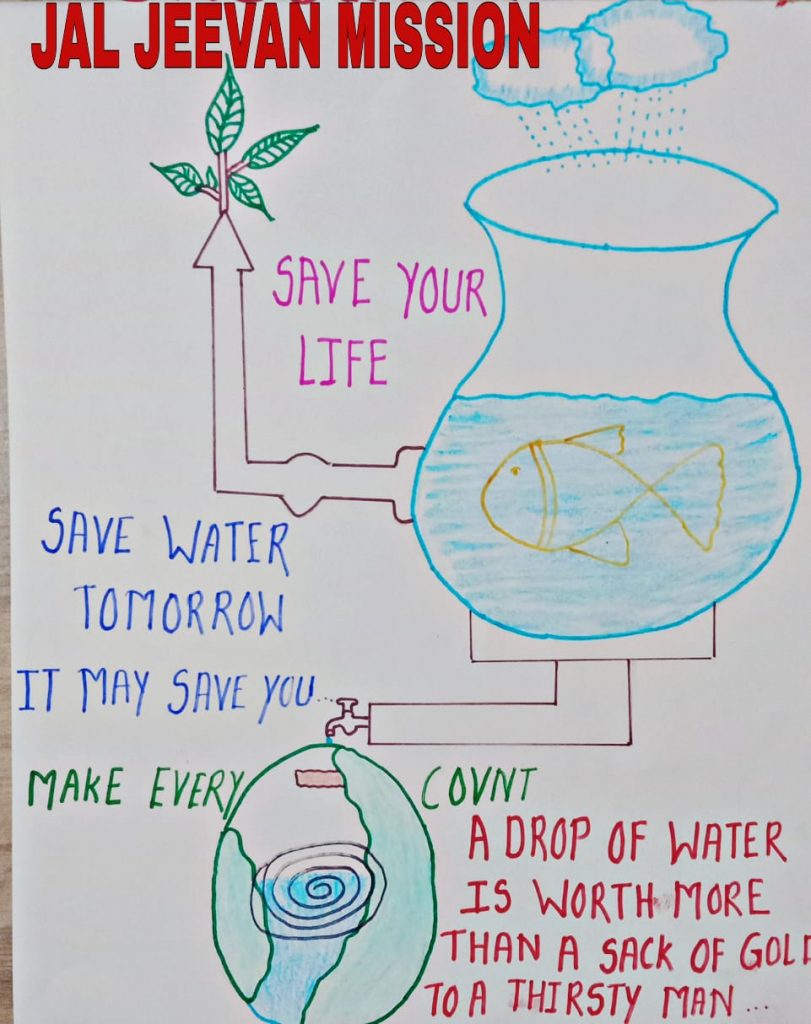 JAL JEEVAN MISSION
SAVE YOUR
LIFE
SAVE WATER
TOMORROW
IT MAY SAVE YOU...
MAKE EVERY COVNT
A DROP OF WATER
IS WORTH MORE
THAN A SACK OF GOLD
TO A THIRSTY MAN...